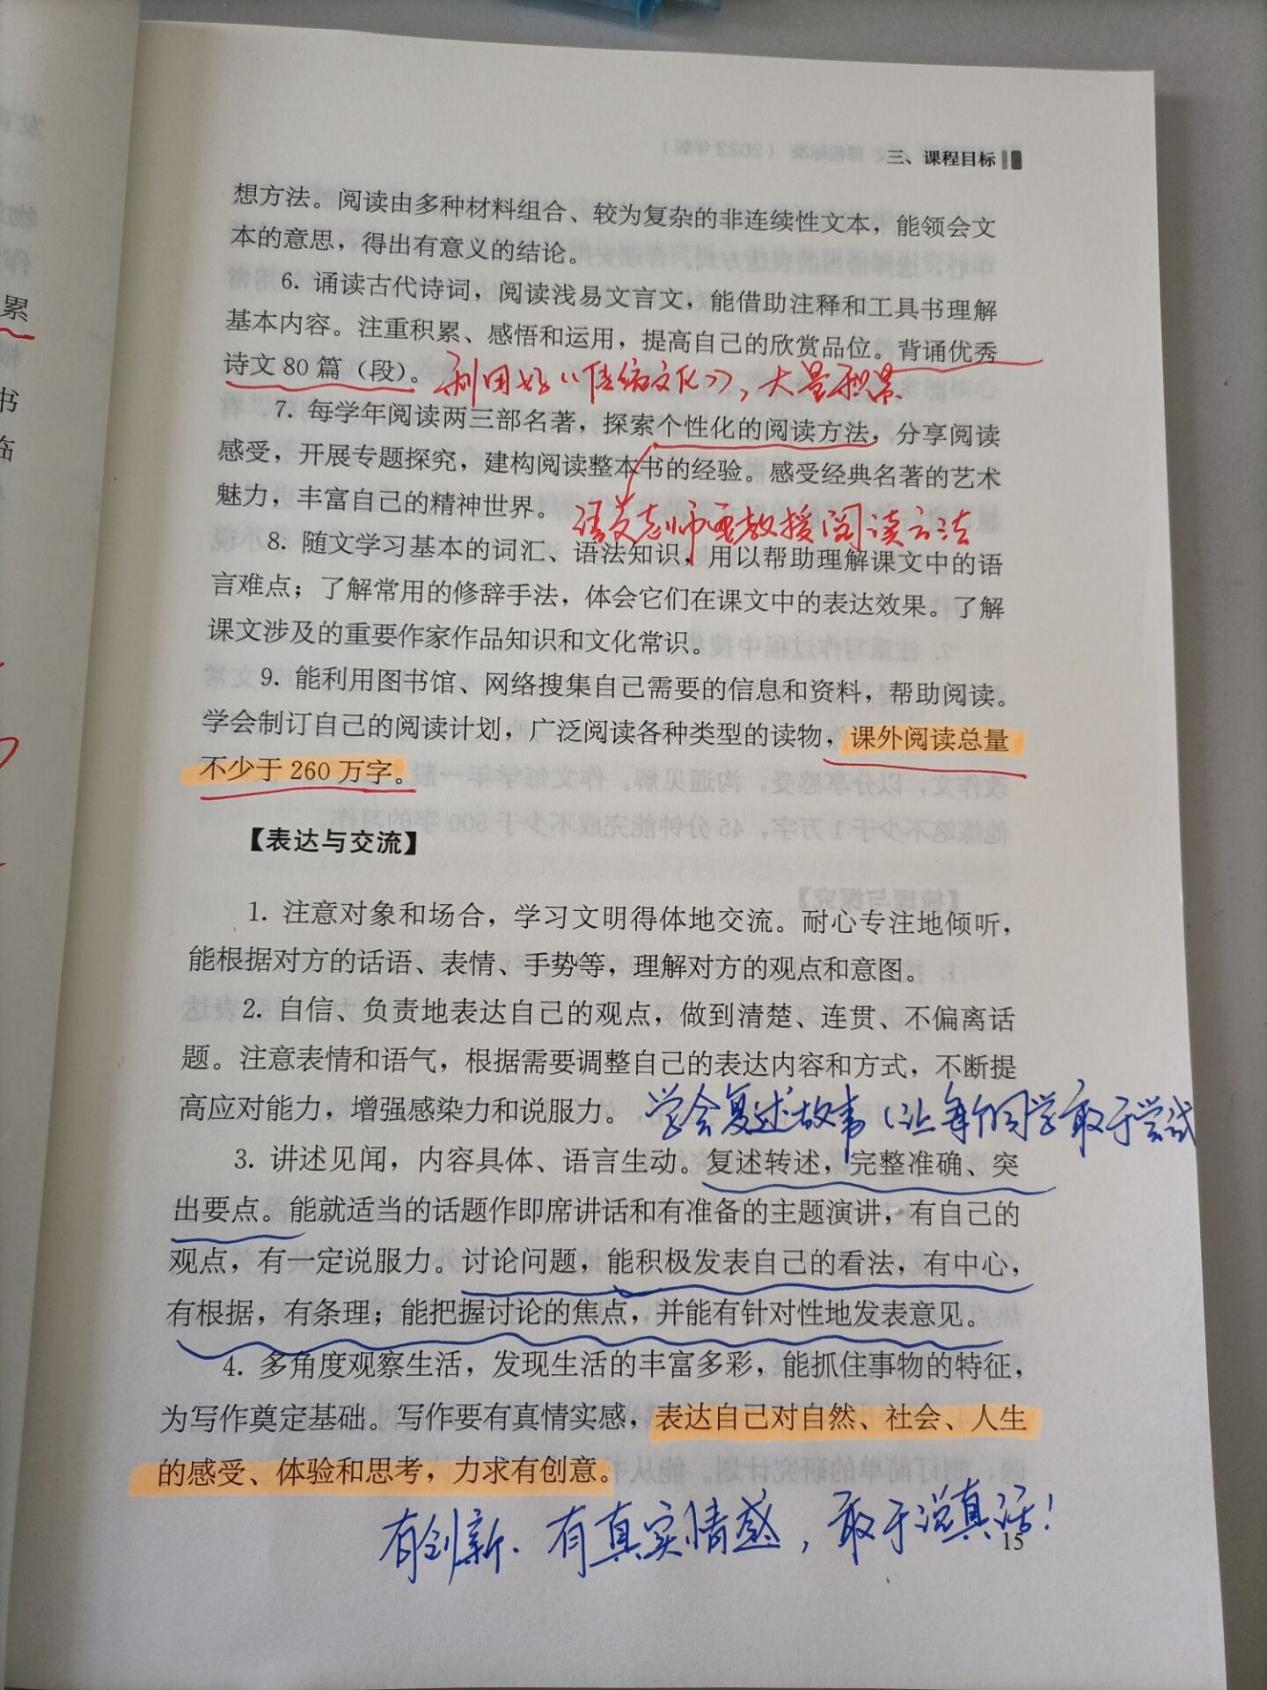 三、课程目标
想方法。阅读由多种材料组合、较为复杂的非连续性文本，能领会文
本的意思，得出有意义的结论。
6. 诵读古代诗词，阅读浅易文言文，能借助注释和工具书理解
基本内容。注重积累、感悟和运用，提高自己的欣赏品位。背诵优秀
诗文 80 篇（段）。利用好《传统文化》，大量积累
7. 每学年阅读两三部名著，探索个性化的阅读方法，分享阅读
感受，开展专题探究，建构阅读整本书的经验。感受经典名著的艺术
魅力，丰富自己的精神世界。
语文老师要教授阅读方法
8. 随文学习基本的词汇、语法知识，用以帮助理解课文中的语
言难点；了解常用的修辞手法，体会它们在课文中的表达效果。了解
课文涉及的重要作家作品知识和文化常识。
9. 能利用图书馆、网络搜集自己需要的信息和资料，帮助阅读。
学会制订自己的阅读计划，广泛阅读各种类型的读物，课外阅读总量
不少于 260 万字。
【表达与交流】
1. 注意对象和场合，学习文明得体地交流。耐心专注地倾听，
能根据对方的话语、表情、手势等，理解对方的观点和意图。
2. 自信、负责地表达自己的观点，做到清楚、连贯、不偏离话
题。注意表情和语气，根据需要调整自己的表达内容和方式，不断提
高应对能力，增强感染力和说服力。
学会复述故事（让每个同学敢于尝试
3. 讲述见闻，内容具体、语言生动。复述转述，完整准确、突
出要点。能就适当的话题作即席讲话和有准备的主题演讲，有自己的
观点，有一定说服力。讨论问题，能积极发表自己的看法，有中心，
有根据，有条理；能把握讨论的焦点，并能有针对性地发表意见。
4. 多角度观察生活，发现生活的丰富多彩，能抓住事物的特征，
为写作奠定基础。写作要有真情实感，表达自己对自然、社会、人生
的感受、体验和思考，力求有创意。
有创新、有真实情感，敢于说真话！
15
累
书
临